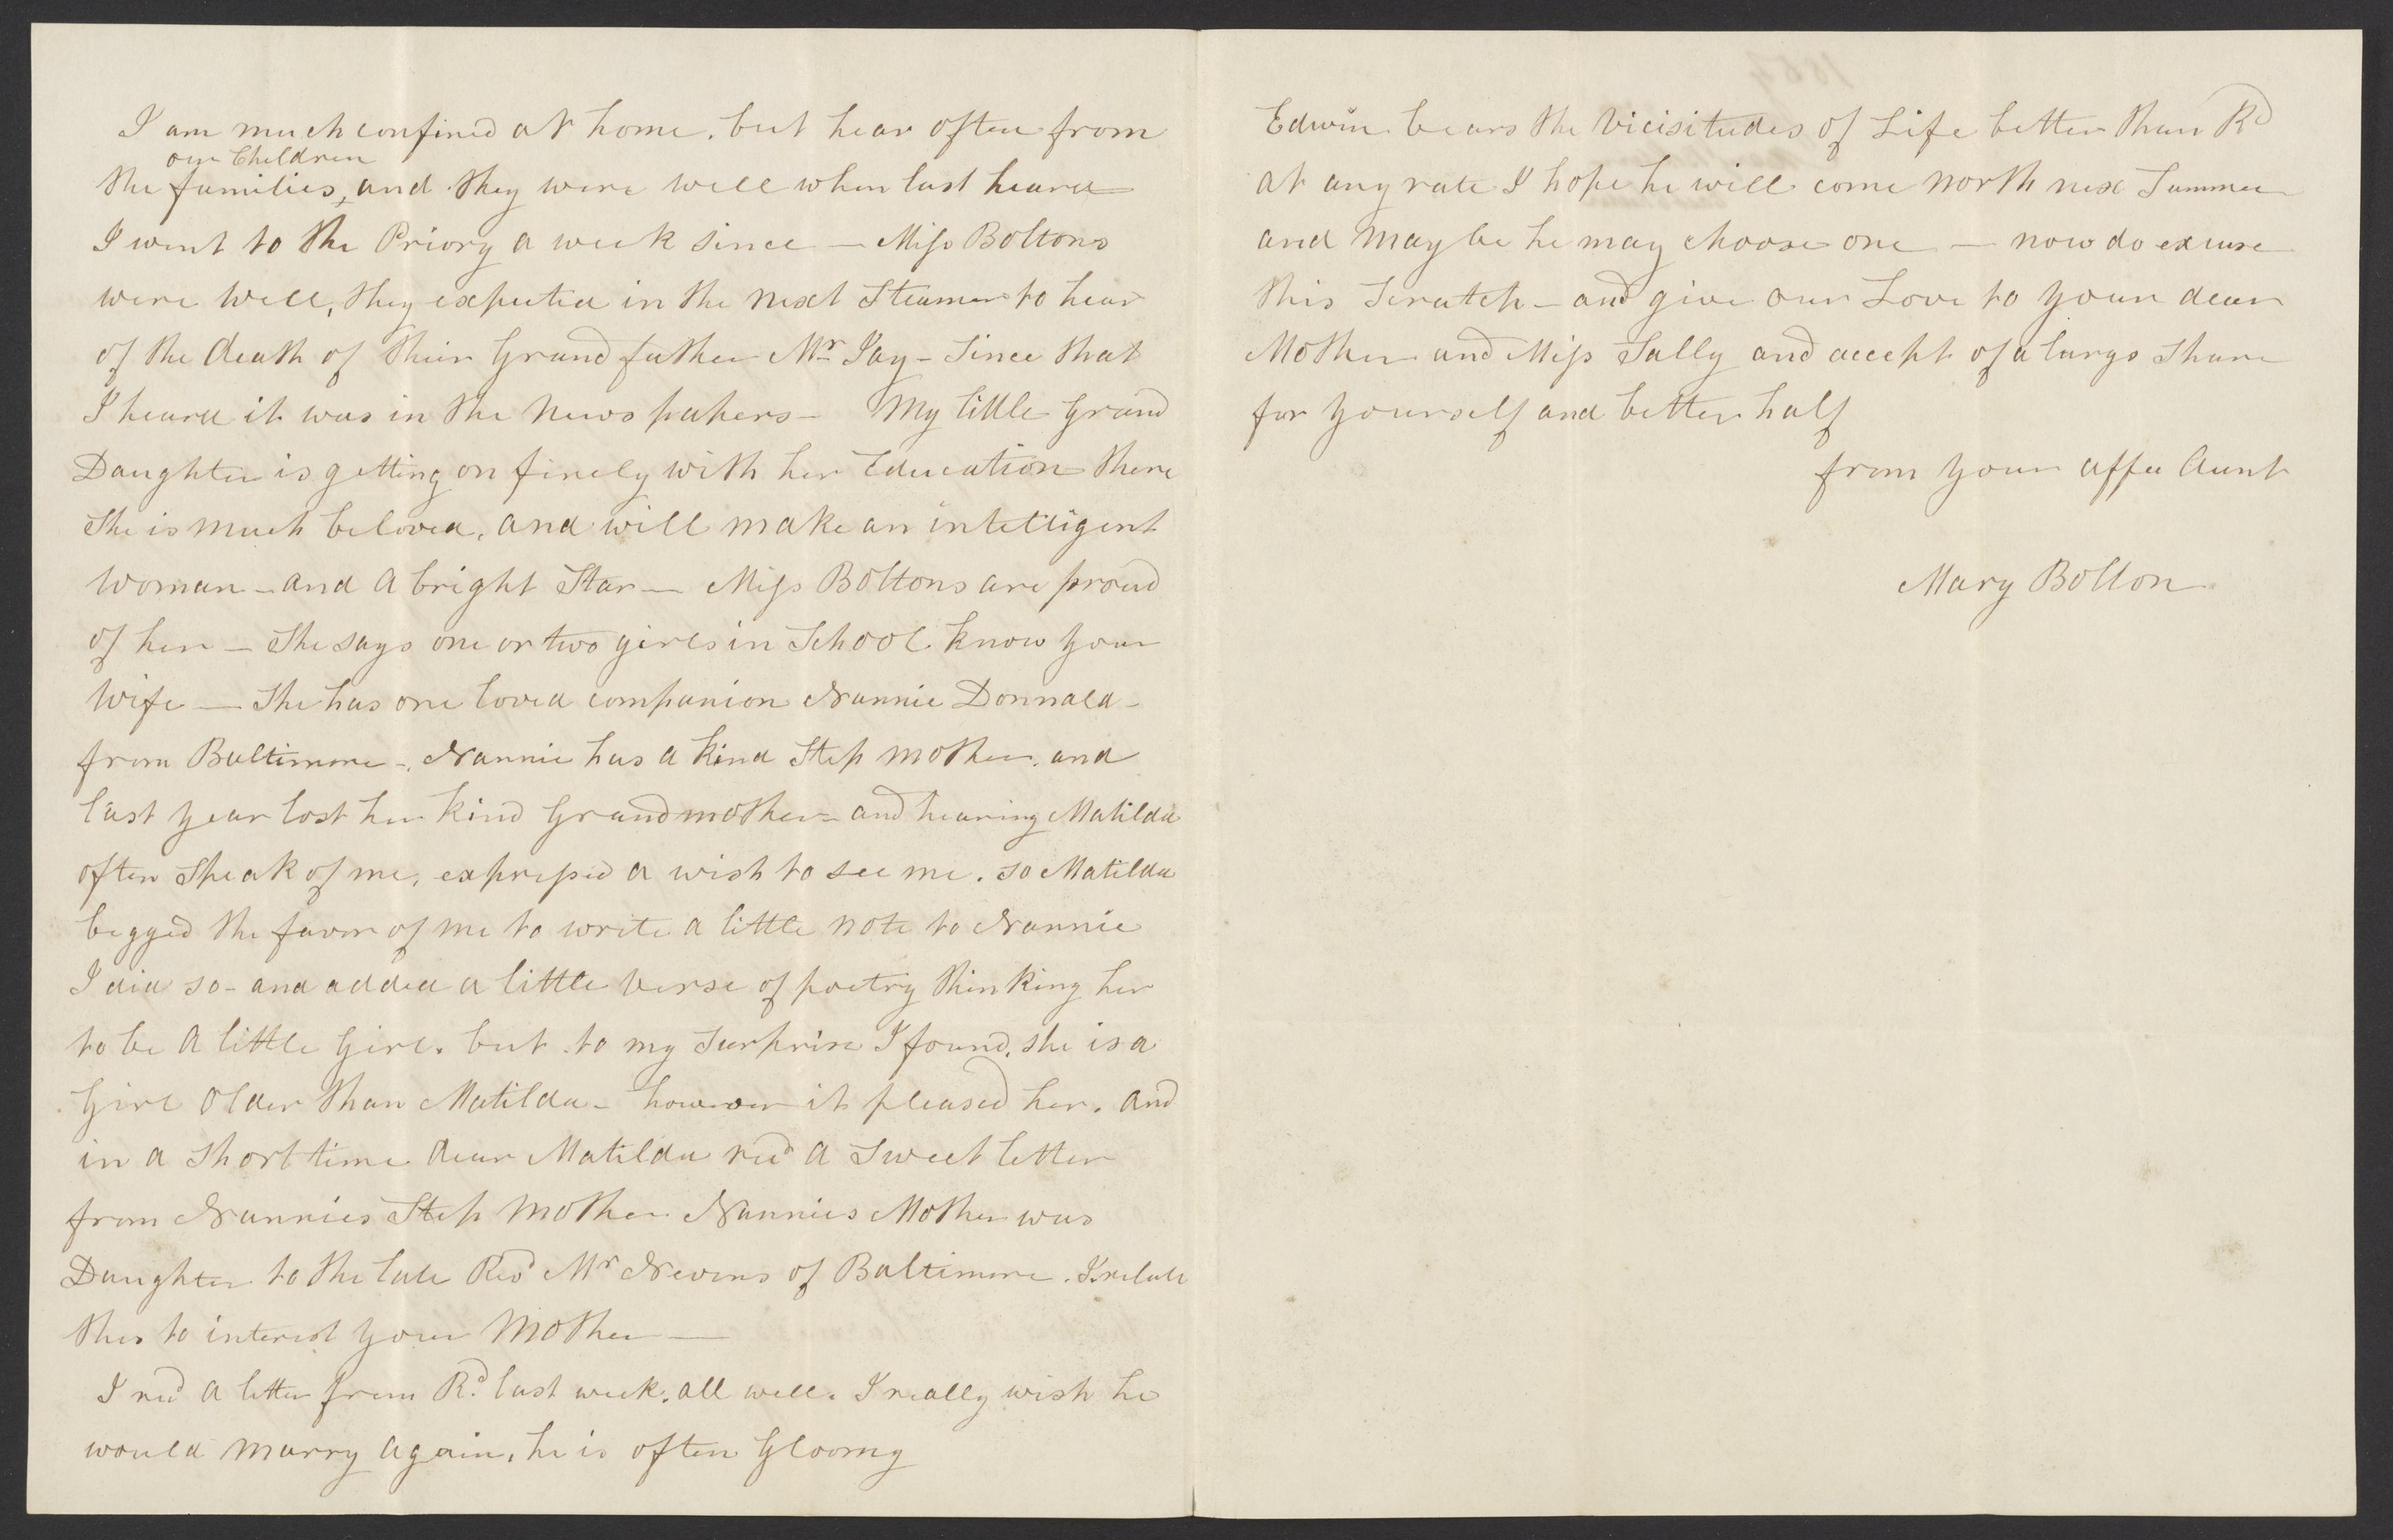 I am much confined at home. but hear often from
our Children
the families, and they were well when last heard
I went to the Priory a week since — Miss Boltons
were well, they expected in the next Steamer to hear
of the death of their Grand father Mr Jay - Since that
I heard it was in the News papers - My little Grand
Daughter is getting on finely with her Education there
She is much beloved, and will make an intelligent
Woman - and a bright Star — Miss Boltons are proud
of her - She says one or two girls in School know your
Wife — She has one loved companion Nannie Donnald -
from Baltimore -. Nannie has a kind Step mother. and
last year lost her kind Grandmother - and hearing Matilda
often Speak of me, expressed a wish to see me. so Matilda
begged the favor of me to write a little note to Nannie
I did so - and added a little verse of poetry thinking her
to be a little Girl. but to my Surprise I found, she is a
Girl older than Matilda - however it pleased her. and
in a Short time dear Matilda recd a Sweet letter
from Nannies Step Mother Nannies Mother was
Daughter to the late Revd Mr Nevens of Baltimore. I relate
this to interest your Mother —
I recd a letter from Rd. last week. all well. I really wish he
would Marry again, he is often Gloomy
Edwin bears the Vicisitudes of Life better than Rd
at any rate I hope he will come North next Summer
and May be he may choose one — now do excuse
this Scratch - and give our Love to your dear
Mother and Miss Sally and accept of a large Share
for yourself and better half
from your affec Aunt
Mary Bolton